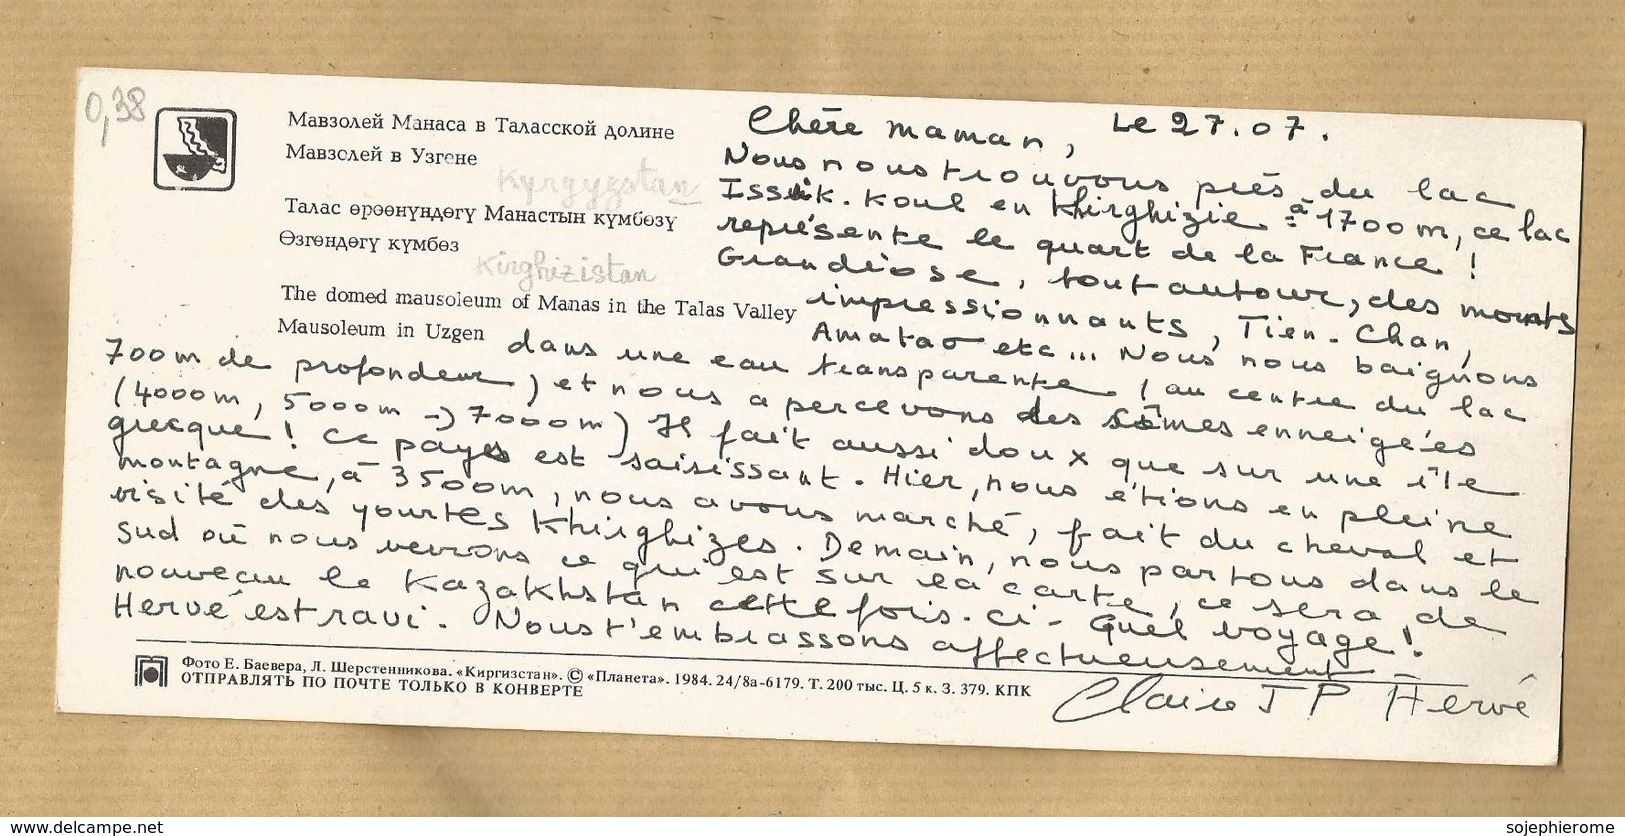 0,38
Мавзолей Манаса в Таласской долине
Мавзолей в Узгене
Kyrgyzstan
Талас өрөөнүндөгү Манастын күмбөзү
Өзгөндөгү күмбөз
Kirghizistan
The domed mausoleum of Manas in the Talas Valley
Mausoleum in Uzgen
Chère maman, Le 27.07.
Nous nous trouvons près du lac
Issik. Koul en Khirghizie à 1700m, ce lac
représente le quart de la France !
Grandiose, tout autour, des monts
impressionnants, Tien-Chan,
Amatao etc... Nous nous baignons
dans une eau transparente, au centre du lac
700m de profondeur, et nous apercevons des cîmes enneigées
(4000m, 5000m -> 7000m) Il fait aussi doux que sur une île
grecque ! Ce pays est saisissant. Hier, nous étions en pleine
montagne, à 3500m, nous avons marché, fait du cheval et
visité des yourtes Khirghizes. Demain, nous partons dans le
sud où nous verrons ce qui est sur la carte, ce sera de
nouveau le Kazakhstan cette fois-ci - Quel voyage !
Hervé est ravi. Nous t'embrassons affectueusement
Claire JP Hervé
Фото Е. Баевера, Л. Шерстенникова. «Киргизстан». © «Планета». 1984. 24/8а-6179. Т. 200 тыс. Ц. 5 к. З. 379. КПК
ОТПРАВЛЯТЬ ПО ПОЧТЕ ТОЛЬКО В КОНВЕРТЕ
https://www.delcampe.net
sojephierome